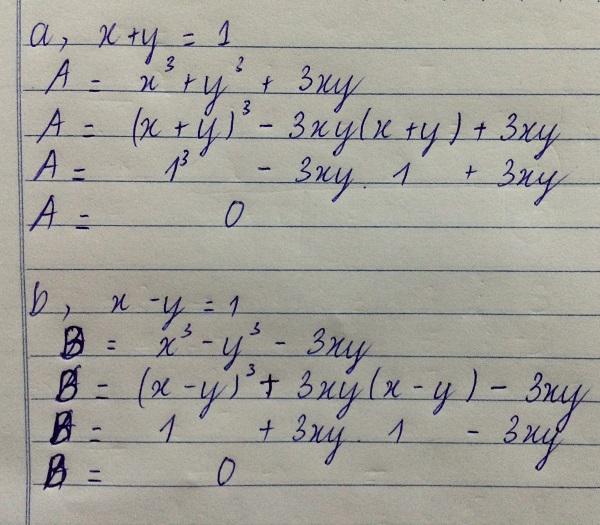 a, x+y = 1
A = x³+y³ + 3xy
A = (x+y)³ - 3xy(x+y) + 3xy
A = 1³ - 3xy. 1 + 3xy
A = 0
b, x - y = 1
B = x³ - y³ - 3xy
B = (x-y)³ + 3xy(x-y) - 3xy
B = 1 + 3xy. 1 - 3xy
B = 0